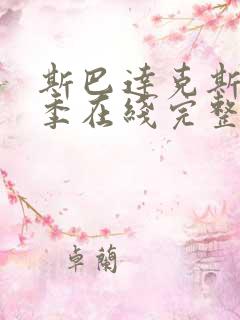 斯巴達克斯
季在綫完整
卓蘭